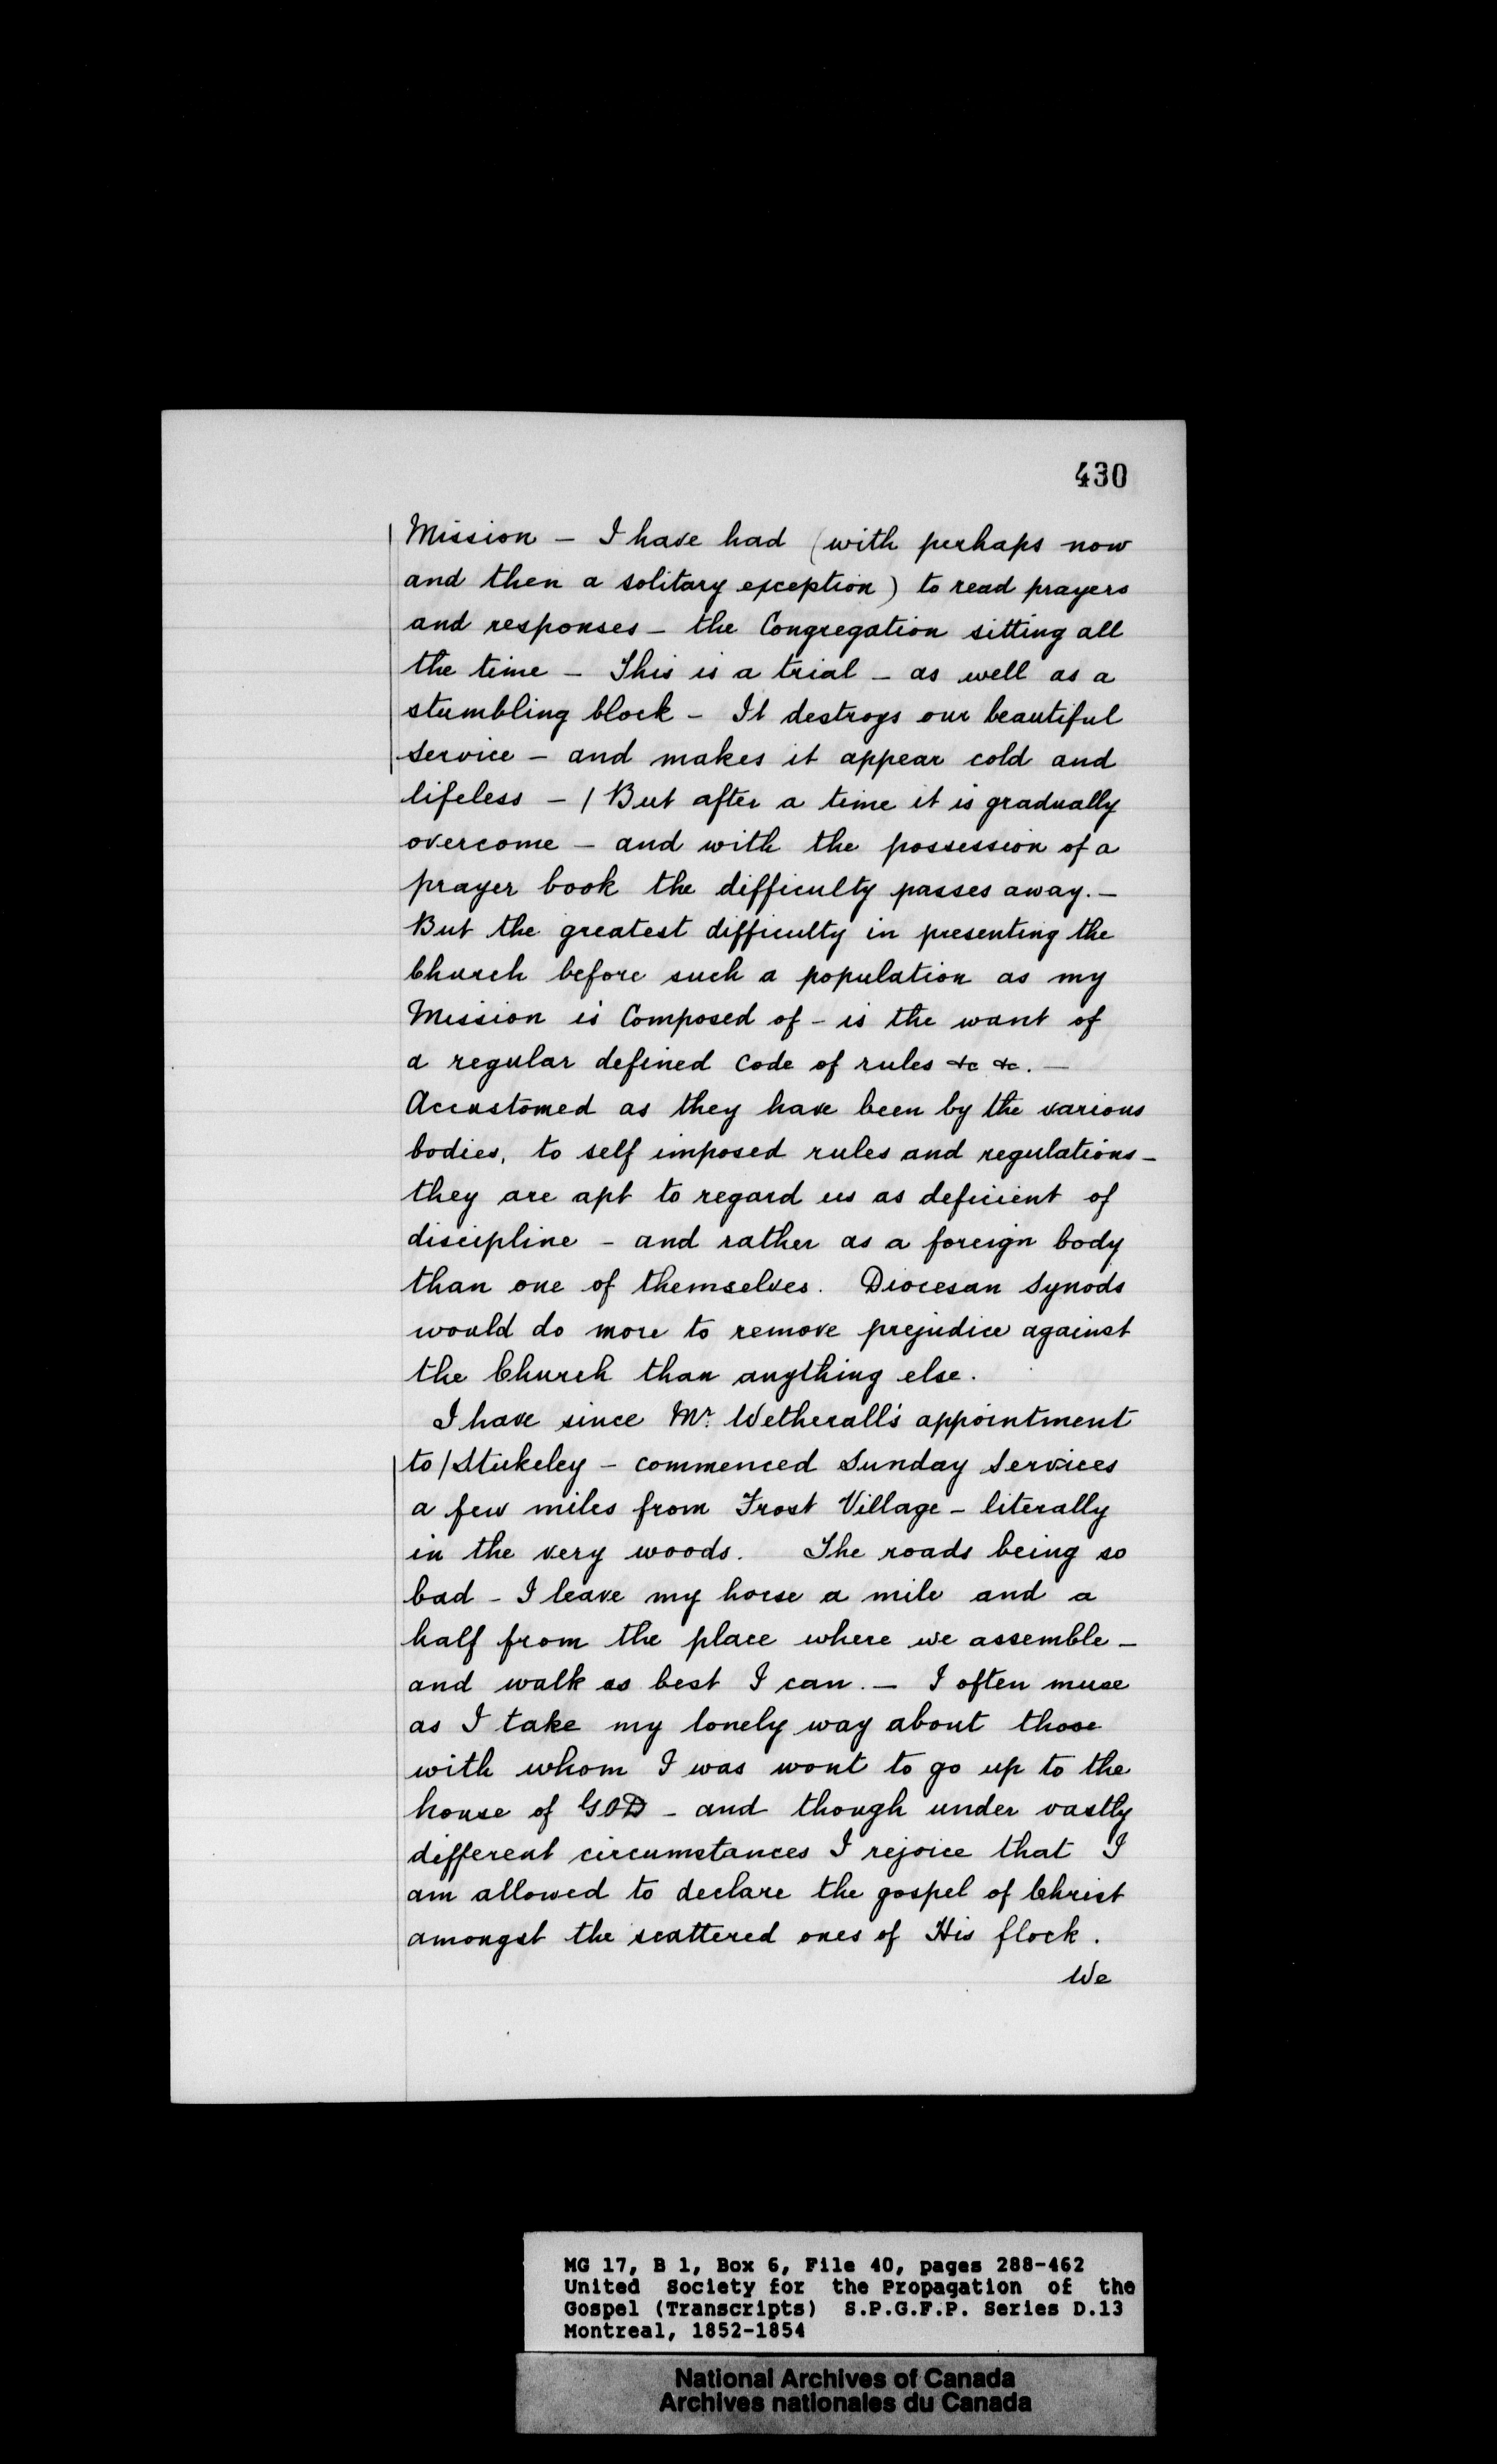 430
Mission – I have had (with perhaps now
and then a solitary exception) to read prayers
and responses – the Congregation sitting all
the time – This is a trial – as well as a
stumbling block – It destroys our beautiful
service – and makes it appear cold and
lifeless – / But after a time it is gradually
overcome – and with the possession of a
prayer book the difficulty passes away. –
But the greatest difficulty in presenting the
Church before such a population as my
Mission is Composed of – is the want of
a regular defined Code of rules &c &c. –
Accustomed as they have been by the various
bodies, to self imposed rules and regulations –
they are apt to regard us as deficient of
discipline – and rather as a foreign body
than one of themselves. Diocesan Synods
would do more to remove prejudice against
the Church than anything else.
I have since Mr. Wetherall's appointment
to / Stukeley – commenced Sunday Services
a few miles from Frost Village – literally
in the very woods. The roads being so
bad – I leave my horse a mile and a
half from the place where we assemble –
and walk as best I can. – I often muse
as I take my lonely way about those
with whom I was wont to go up to the
house of GOD – and though under vastly
different circumstances I rejoice that I
am allowed to declare the gospel of Christ
amongst the scattered ones of His flock.
We
MG 17, B 1, Box 6, File 40, pages 288-462
United Society for the Propagation of the
Gospel (Transcripts) S.P.G.F.P. Series D.13
Montreal, 1852-1854
National Archives of Canada
Archives nationales du Canada